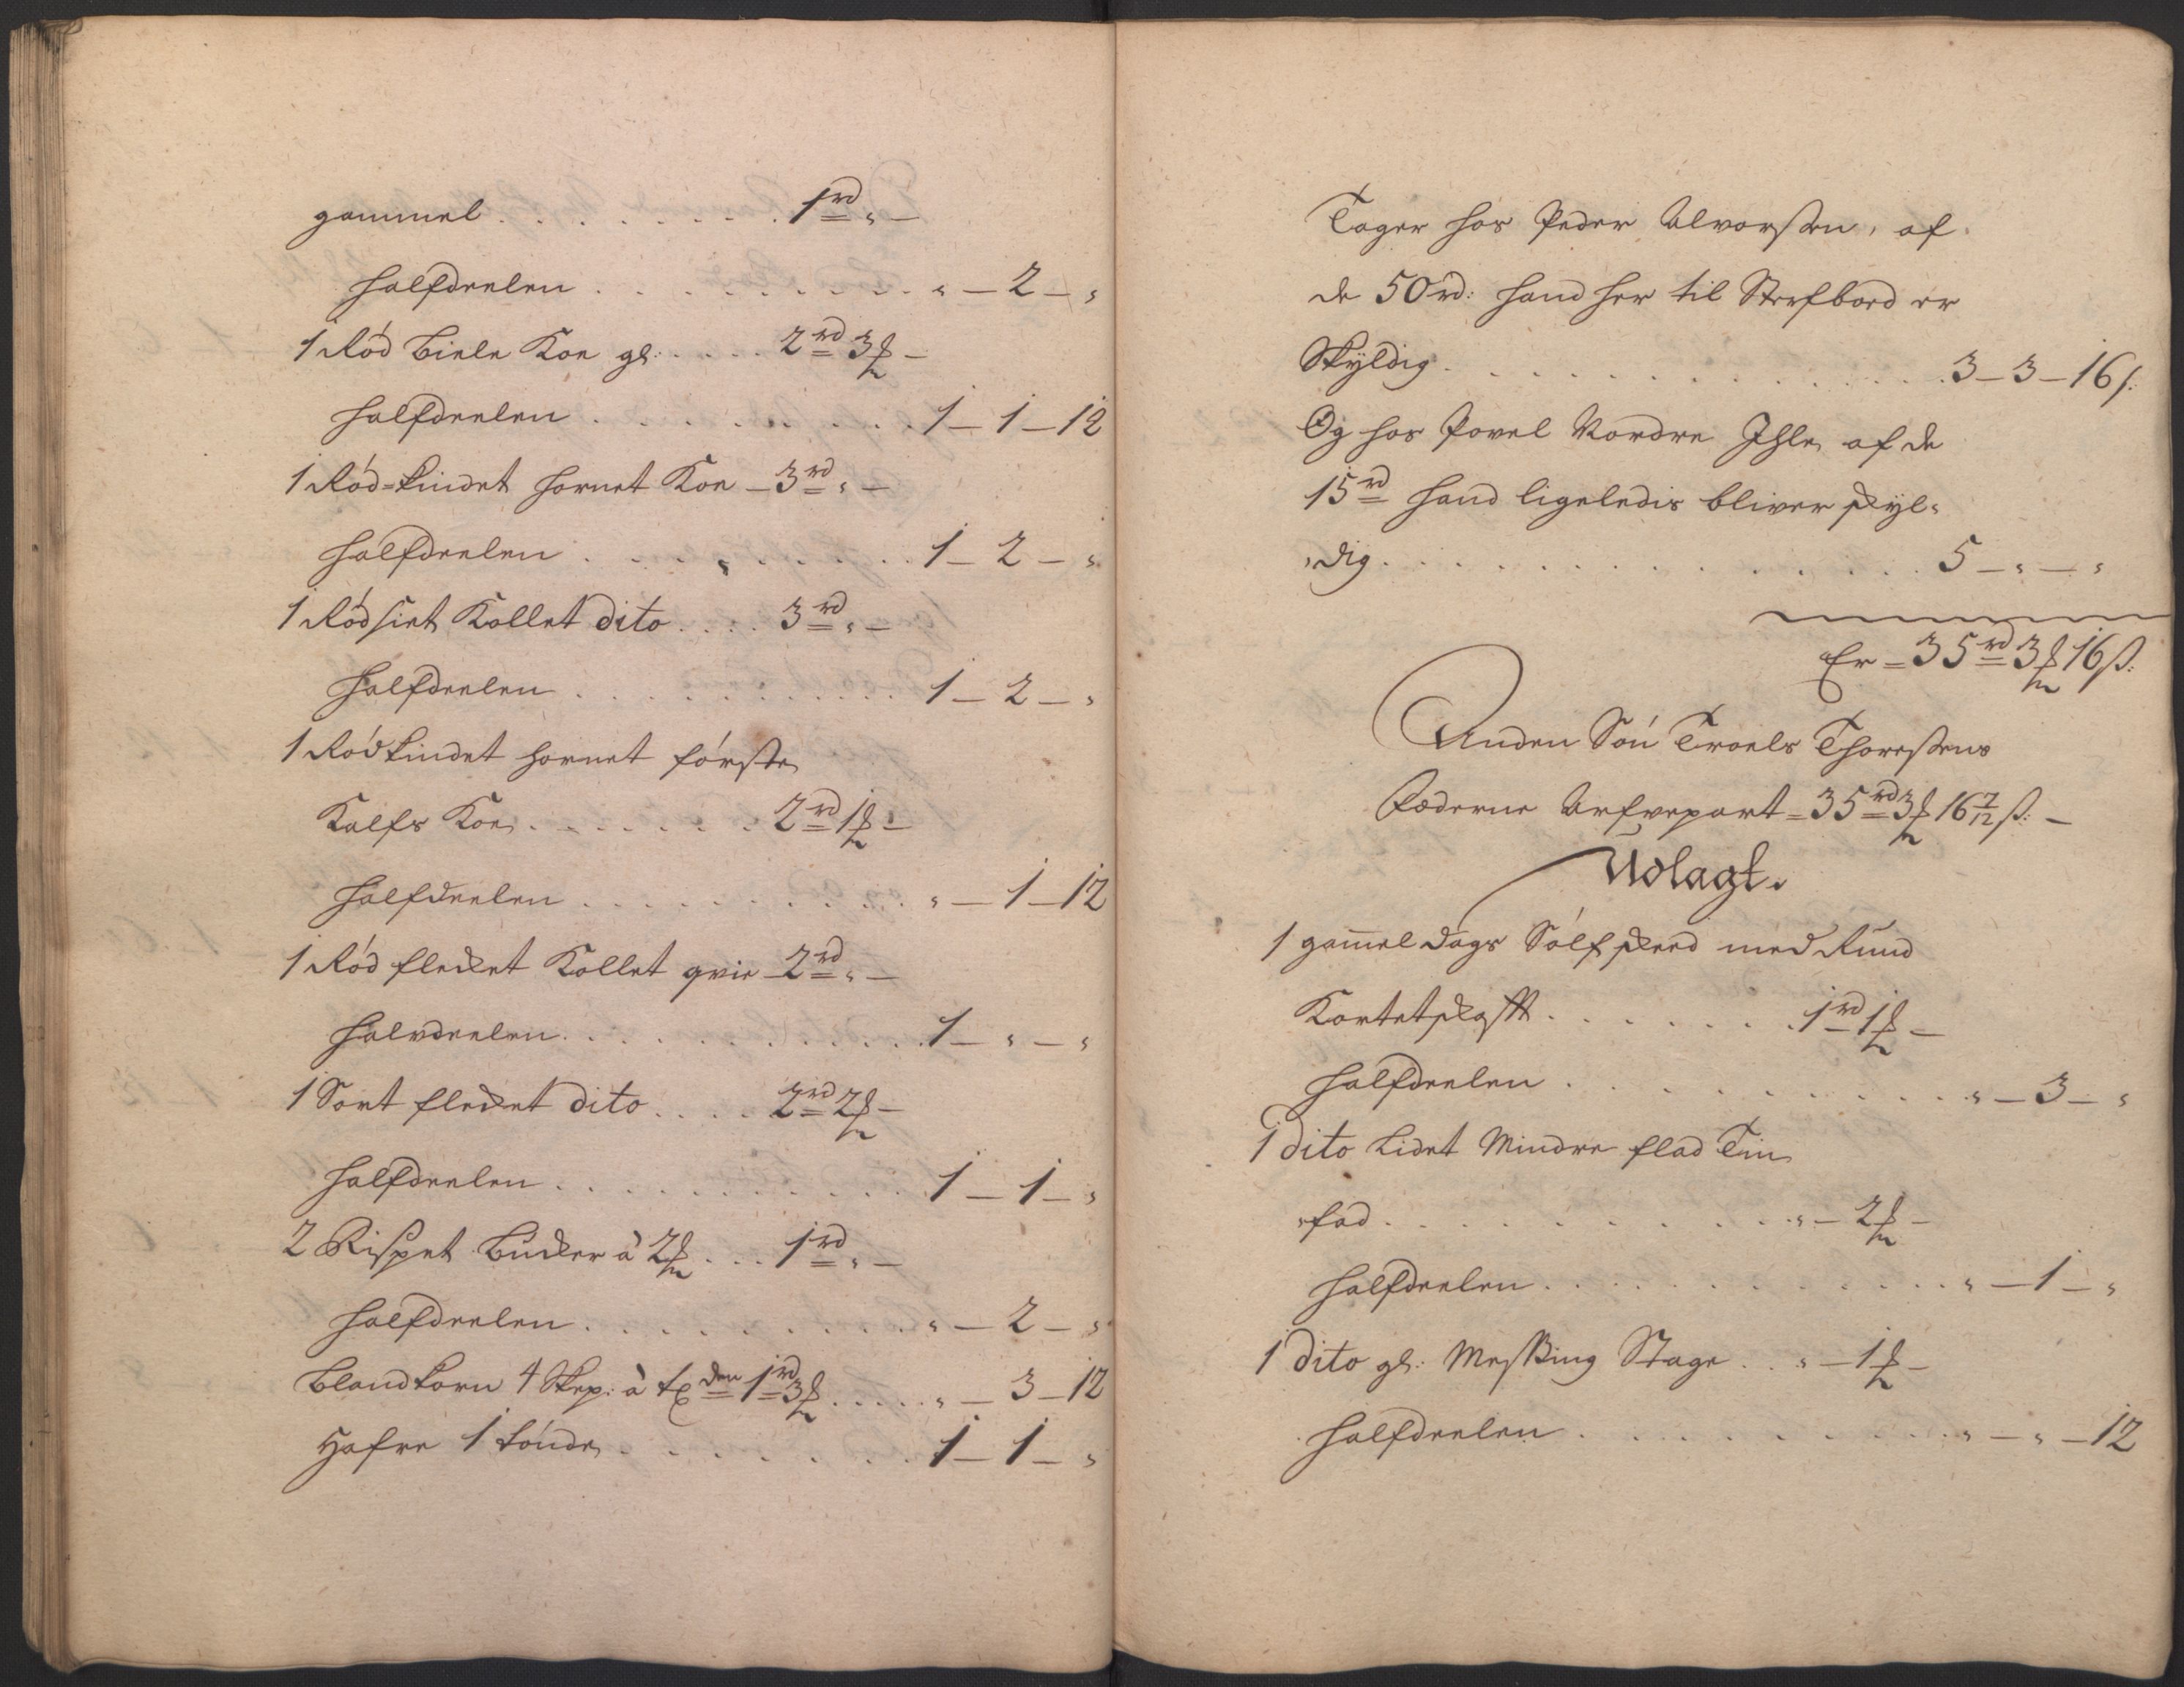 gammel . . . . . . . . 1 rd „ —
Halfdeelen . . . . . . . . . . „ — 2 — „
1 Rød Biele Koe gl: . . . . 2 rd 3 ƒ —
Halfdeelen . . . . . . . . . . 1 — 1 — 12
1 Rød-kindet hornet Koe — 3 rd „ —
Halfdeelen . . . . . . . . . . 1 — 2 — „
1 Rødsiet Kollet dito . . . . 3 rd „ —
Halfdeelen . . . . . . . . . . 1 — 2 — „
1 Rødkindet hornet første
Kalfs Koe . . . . . . . . 2 rd 1 ƒ —
Halfdeelen . . . . . . . . . . „ — 1 — 12
1 Rød flecket Kollet qvie — 2 rd „ —
Halvdeelen . . . . . . . . . . 1 — „ — „
1 Sort flecket dito . . . . 2 rd 2 ƒ —
Halfdeelen . . . . . . . . . . 1 — 1 — „
2 Rispet Bucker à 2 ƒ . . . 1 rd „ —
Halfdeelen . . . . . . . . . . „ — 2 — „
Blandkorn 4 Skep: à tø den 1 rd 3 ƒ . . . . . „ — 3 — 12
Hafre 1 tønde . . . . . . . . 1 — 1 — „
Tager hos Peder Alvorsen, af
de 50 rd: hand her til Sterfboed er
Skyldig . . . . . . . . . . . . 3 — 3 — 16 ß:
Og hos Povel Nordre Ihle, af de
15 rd hand ligeledis bliver skyl-
-dig . . . . . . . . . . . . . . 5 — „ — „
Er = 35 rd 3 ƒ 16 ß:
Anden Søn Troels Thoresens
Fæderne Arfvepart = 35 rd 3 ƒ 16 7/12 ß: —
Udlagt.
1 gam̄el dags Sølf skeed med Rund
Kortet skafft . . . . . . . . 1 rd 1 ƒ —
Halfdeelen . . . . . . . . . . „ — 3 — „
1 dito Lidet Mindre flad Tin
-fad . . . . . . . . . . . . „ — 2 ƒ —
Halfdeelen . . . . . . . . . . „ — 1 — „
1 dito gl: Messing Stage . . „ — 1 ƒ —
Halfdeelen . . . . . . . . . . „ — „ — 12